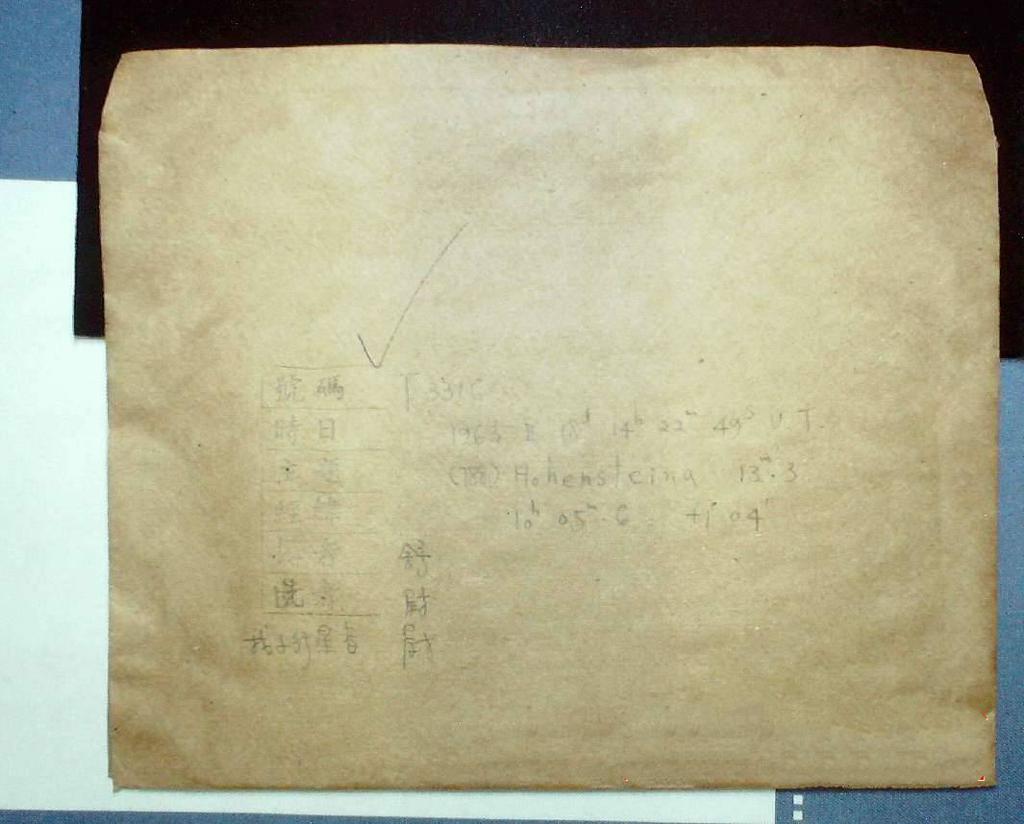 號碼 T 331C
時日 1963 II 18ᵈ 14ʰ 22ᵐ 49ˢ U.T.
主題 (788) Hohensteina 13ᵐ.3
經緯 10ʰ 05ᵐ.6 +1° 04'
舒
尉
找小行星者 尉